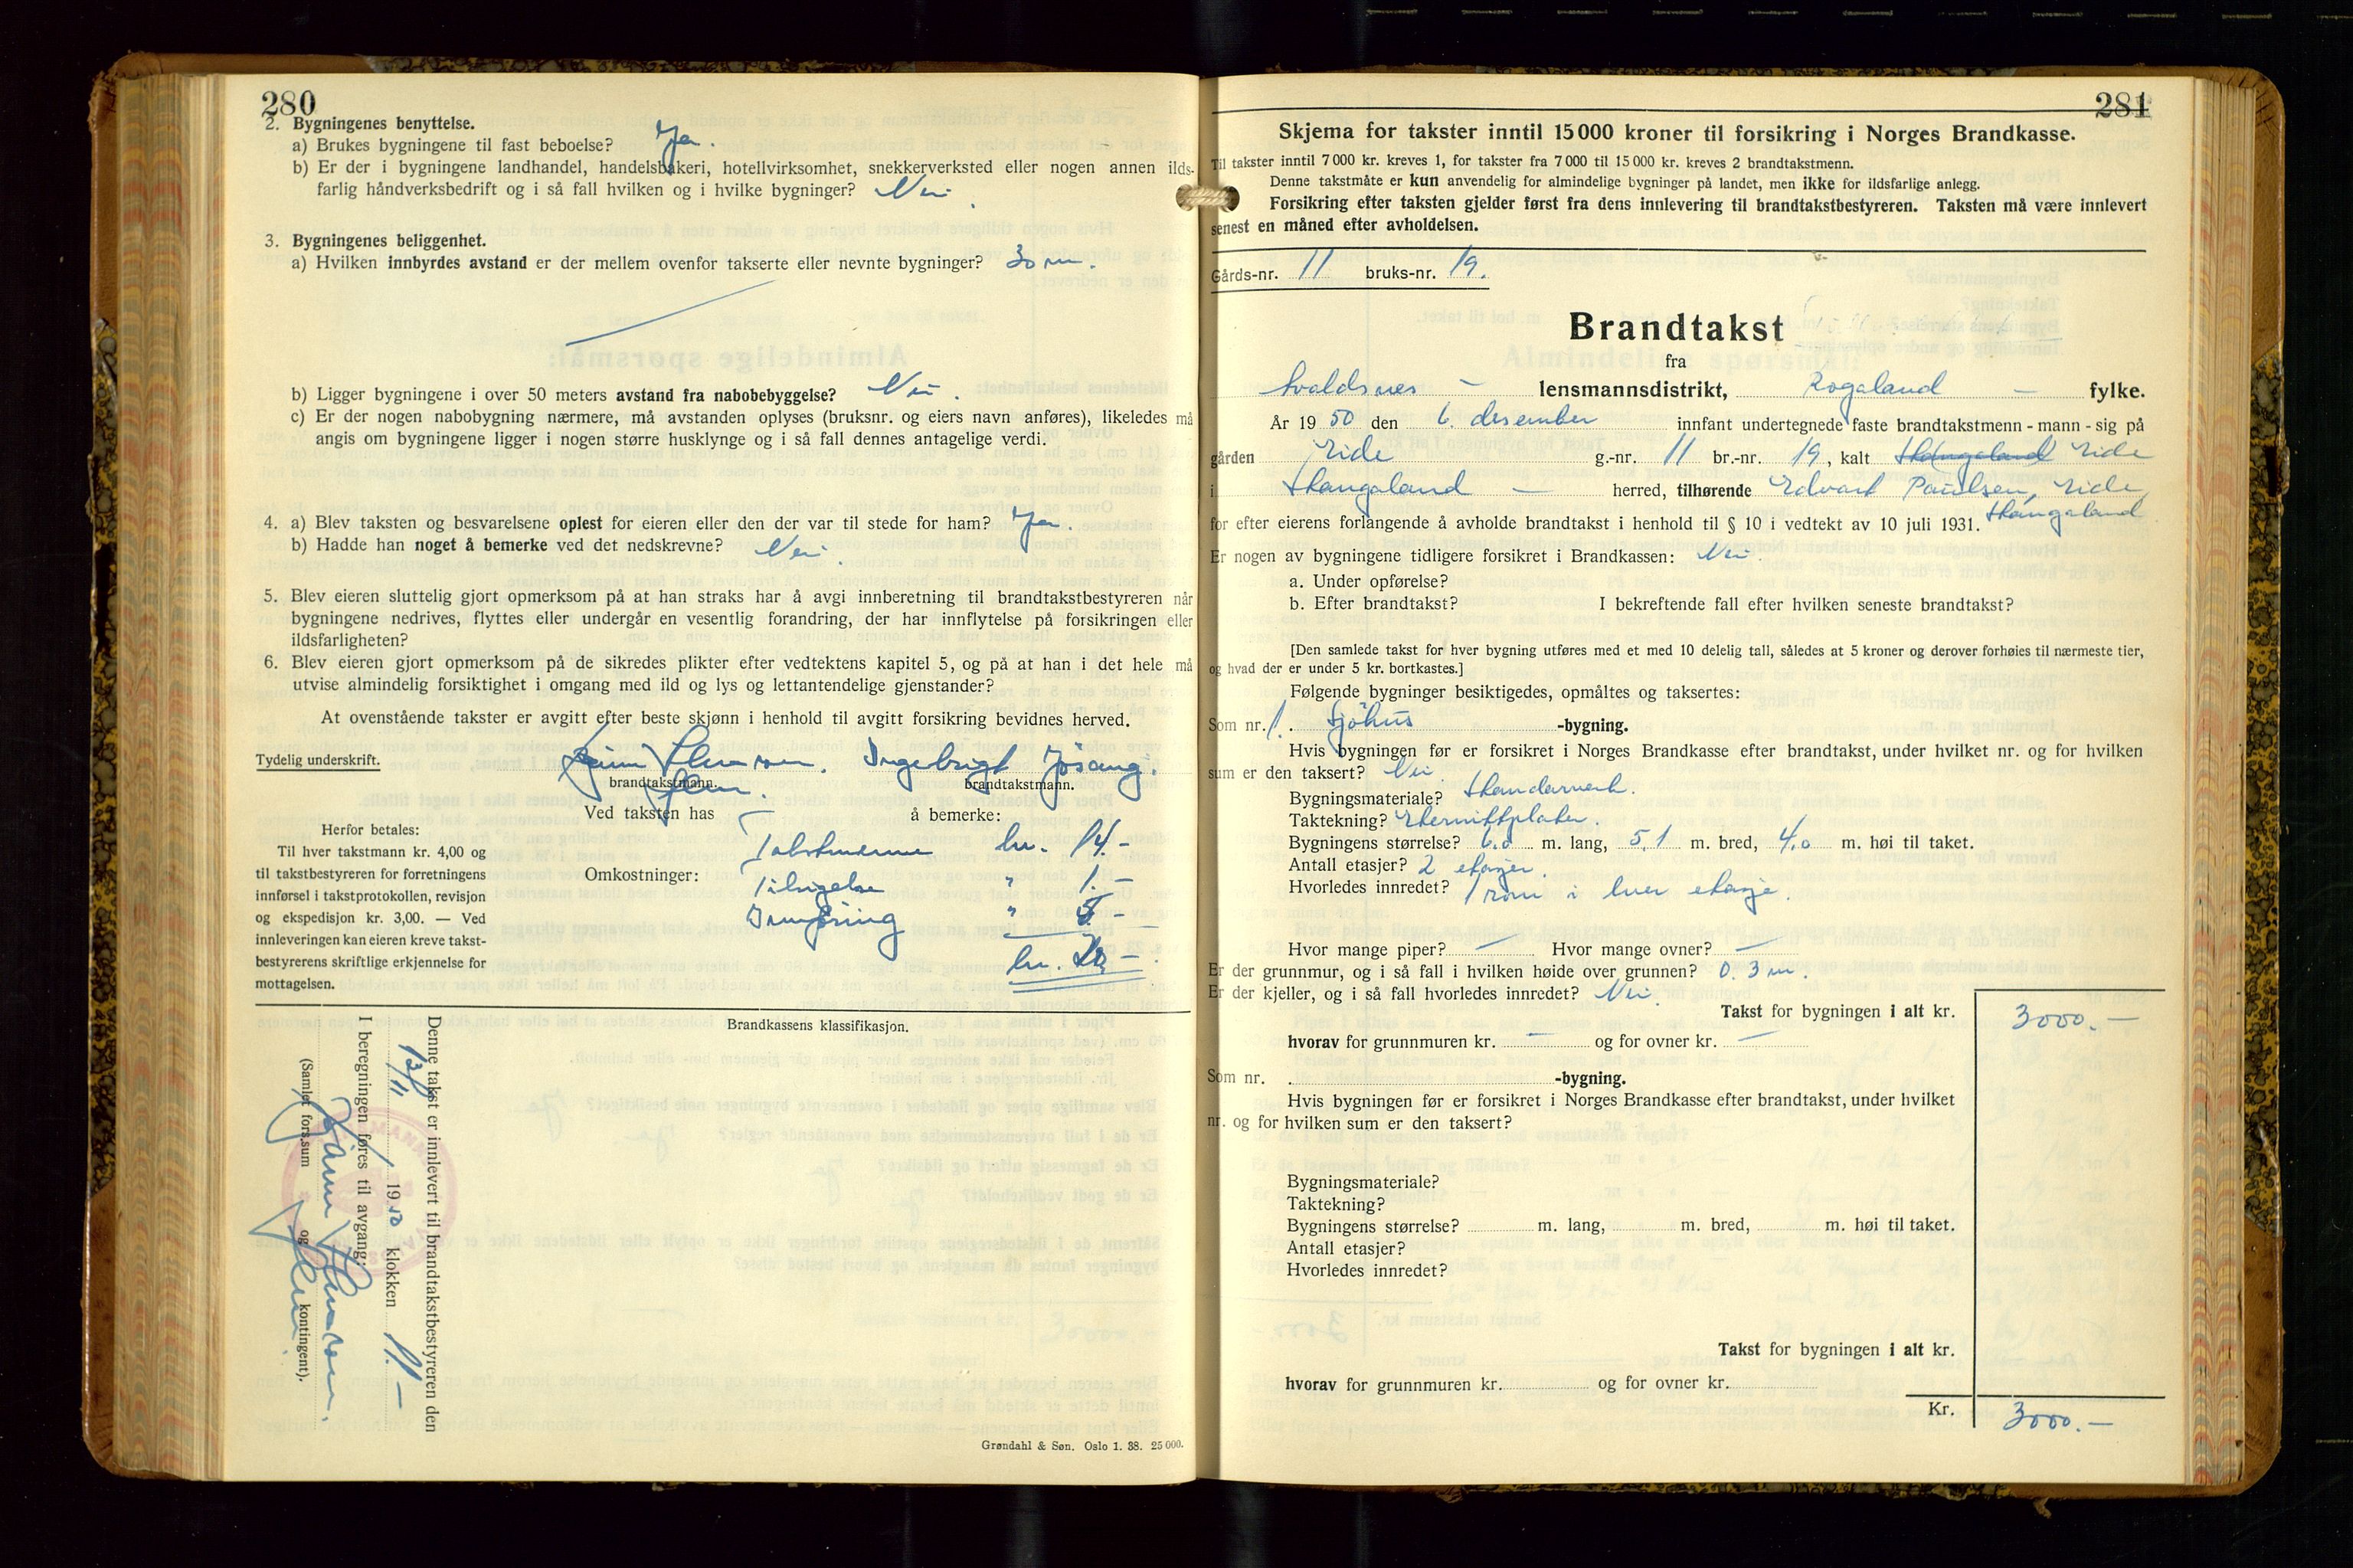 280
2. Bygningenes benyttelse.
a) Brukes bygningene til fast beboelse? Ja.
b) Er der i bygningene landhandel, handelsbakeri, hotellvirksomhet, snekkerverksted eller nogen annen ilds-
farlig håndverksbedrift og i så fall hvilken og i hvilke bygninger? Nei.
3. Bygningenes beliggenhet.
a) Hvilken innbyrdes avstand er der mellem ovenfor takserte eller nevnte bygninger? 30 m.
b) Ligger bygningene i over 50 meters avstand fra nabobebyggelse? Nei.
c) Er der nogen nabobygning nærmere, må avstanden oplyses (bruksnr. og eiers navn anføres), likeledes må
angis om bygningene ligger i nogen større husklynge og i så fall dennes antagelige verdi.
4. a) Blev taksten og besvarelsene oplest for eieren eller den der var til stede for ham? Ja.
b) Hadde han noget å bemerke ved det nedskrevne? Nei.
5. Blev eieren sluttelig gjort opmerksom på at han straks har å avgi innberetning til brandtakstbestyreren når
bygningene nedrives, flyttes eller undergår en vesentlig forandring, der har innflytelse på forsikringen eller
ildsfarligheten?
6. Blev eieren gjort opmerksom på de sikredes plikter efter vedtektens kapitel 5, og på at han i det hele må
utvise almindelig forsiktighet i omgang med ild og lys og lettantendelige gjenstander?
At ovenstående takster er avgitt efter beste skjønn i henhold til avgitt forsikring bevidnes herved.
Tydelig underskrift. Ingebrigt Jøsang.
brandtakstmann. brandtakstmann.
Ved taksten has å bemerke:
Herfor betales:
Til hver takstmann kr. 4,00 og
til takstbestyreren for forretningens
innførsel i takstprotokollen, revisjon
og ekspedisjon kr. 3,00. — Ved
innleveringen kan eieren kreve takst-
bestyrerens skriftlige erkjennelse for
mottagelsen.
Takstmennene kr. 14.-
Omkostninger:
" 1.-
Innføring " 5.-
kr. 20.-
Brandkassens klassifikasjon.
Denne takst er innlevert til brandtakstbestyreren den
13/11 1950 klokken 11.-
I beregningen føres til avgang:
(Samlet fors.sum og kontingent).
Grøndahl & Søn. Oslo 1. 38. 25 000.
281
Skjema for takster inntil 15 000 kroner til forsikring i Norges Brandkasse.
Til takster inntil 7 000 kr. kreves 1, for takster fra 7 000 til 15 000 kr. kreves 2 brandtakstmenn.
Denne takstmåte er kun anvendelig for almindelige bygninger på landet, men ikke for ildsfarlige anlegg.
Forsikring efter taksten gjelder først fra dens innlevering til brandtakstbestyreren. Taksten må være innlevert
senest en måned efter avholdelsen.
Gårds-nr. 11 bruks-nr. 19.
Brandtakst
fra
Avaldsnes - lensmannsdistrikt, Rogaland - fylke.
År 1950 den 6. desember innfant undertegnede faste brandtakstmenn - mann - sig på
gården Eide g.-nr. 11 br.-nr. 19, kalt Skangaland Eide
i Skangaland - herred, tilhørende Edvart Paulsen, Eide,
Skangaland
for efter eierens forlangende å avholde brandtakst i henhold til § 10 i vedtekt av 10 juli 1931.
Er nogen av bygningene tidligere forsikret i Brandkassen: Nei
a. Under opførelse?
b. Efter brandtakst? I bekreftende fall efter hvilken seneste brandtakst?
[Den samlede takst for hver bygning utføres med et med 10 delelig tall, således at 5 kroner og derover forhøies til nærmeste tier,
og hvad der er under 5 kr. bortkastes.]
Følgende bygninger besiktigedes, opmåltes og taksertes:
Som nr. 1. Sjøhus -bygning.
Hvis bygningen før er forsikret i Norges Brandkasse efter brandtakst, under hvilket nr. og for hvilken
sum er den taksert? Nei
Bygningsmateriale? Standarverk.
Taktekning? Eternittplater.
Bygningens størrelse? 6.0 m. lang, 5,1 m. bred, 4.0 m. høi til taket.
Antall etasjer? 2 etasjer.
Hvorledes innredet? 1 rom i hver etasje.
Hvor mange piper? — Hvor mange ovner? —
Er der grunnmur, og i så fall i hvilken høide over grunnen? 0.3 m.
Er der kjeller, og i så fall hvorledes innredet? Nei
Takst for bygningen i alt kr. 3000.—
hvorav for grunnmuren kr. — og for ovner kr. —
Som nr. -bygning.
Hvis bygningen før er forsikret i Norges Brandkasse efter brandtakst, under hvilket
nr. og for hvilken sum er den taksert?
Bygningsmateriale?
Taktekning?
Bygningens størrelse? m. lang, m. bred, m. høi til taket.
Antall etasjer?
Hvorledes innredet?
Takst for bygningen i alt kr.
hvorav for grunnmuren kr. og for ovner kr.
Kr. 3000.—